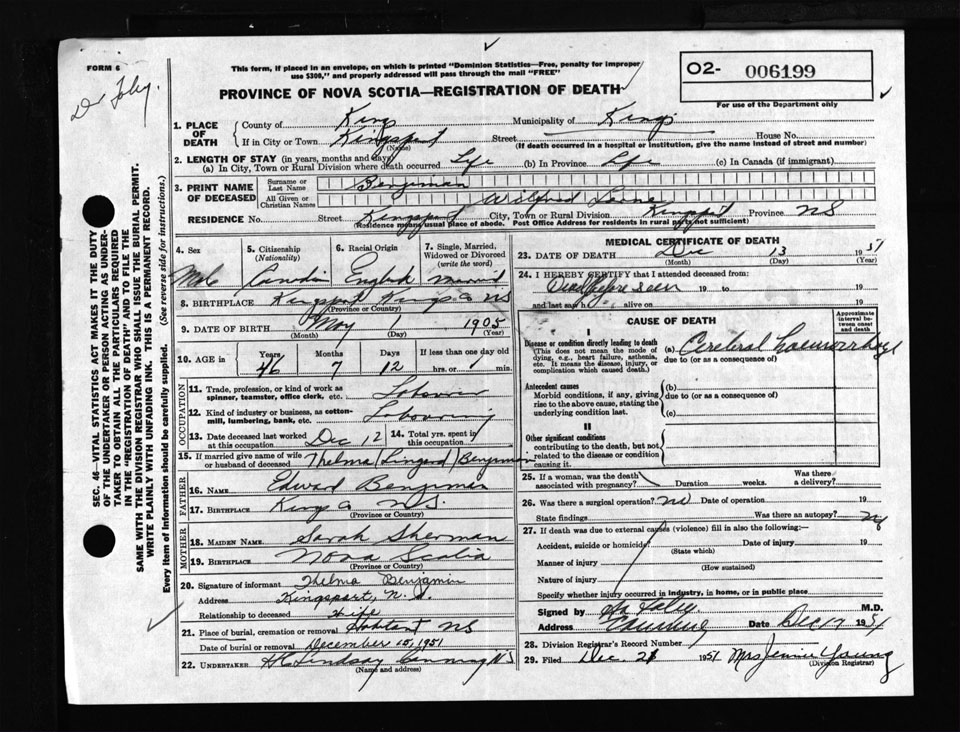 FORM 6
Dr Foley.
This form, if placed in an envelope, on which is printed "Dominion Statistics—Free, penalty for improper
use $300," and properly addressed will pass through the mail "FREE"
O2- 006199
For use of the Department only
PROVINCE OF NOVA SCOTIA—REGISTRATION OF DEATH
1. PLACE OF DEATH County of Kings Municipality of Kings
If in City or Town Kingsport (Name) Street House No.
(If death occurred in a hospital or institution, give the name instead of street and number)
2. LENGTH OF STAY (in years, months and days)
(a) In City, Town or Rural Division where death occurred Life (b) In Province Life (c) In Canada (if immigrant)
3. PRINT NAME OF DECEASED Surname or Last Name Benjiman
All Given or Christian Names Wilfred
RESIDENCE No. Street Kingsport City, Town or Rural Division Kingsport Province NS
(Residence means usual place of abode. Post Office Address for residents in rural parts not sufficient)
4. Sex 5. Citizenship (Nationality) 6. Racial Origin 7. Single, Married, Widowed or Divorced (write the word)
Male Canadian English Married
8. BIRTHPLACE Kingsport Kings Co NS
(Province or Country)
9. DATE OF BIRTH May 1905
(Month) (Day) (Year)
10. AGE in Years Months Days If less than one day old
46 7 12 hrs. or min.
OCCUPATION
11. Trade, profession, or kind of work as
spinner, teamster, office clerk, etc. Labourer
12. Kind of industry or business, as cotton-
mill, lumbering, bank, etc. Labouring
13. Date deceased last worked at this occupation Dec 12 14. Total yrs. spent in this occupation
15. If married give name of wife or husband of deceased Thelma (Lingard) Benjiman
FATHER
16. NAME Edward Benjiman
17. BIRTHPLACE Kings Co N.S.
(Province or Country)
MOTHER
18. MAIDEN NAME Sarah Sherman
19. BIRTHPLACE Nova Scotia
(Province or Country)
20. Signature of informant Thelma Benjamin
Address Kingsport, N.S.
Relationship to deceased Wife
21. Place of burial, cremation or removal NS
Date of burial or removal December 15, 1951
22. UNDERTAKER H C Lindsay Canning NS
(Name and address)
MEDICAL CERTIFICATE OF DEATH
23. DATE OF DEATH Dec 13 1951
(Month) (Day) (Year)
24. I HEREBY CERTIFY that I attended deceased from:
Died before seen 19 to 19
and last saw h alive on 19
CAUSE OF DEATH
Approximate interval between onset and death
I
Disease or condition directly leading to death (a) Cerebral haemorrhage
(This does not mean the mode of due to (or as a consequence of)
dying, e.g., heart failure, asthenia,
etc. It means the disease, injury, or
complication which caused death.)
Antecedent causes (b)
Morbid conditions, if any, giving due to (or as a consequence of)
rise to the above cause, stating the
underlying condition last. (c)
II
Other significant conditions
contributing to the death, but not
related to the disease or condition
causing it.
25. If a woman, was the death associated with pregnancy? Duration weeks. Was there a delivery?
26. Was there a surgical operation? no Date of operation 19
State findings Was there an autopsy? no
27. If death was due to external causes (violence) fill in also the following:
Accident, suicide or homicide? Date of injury 19
(State which)
Manner of injury
(How sustained)
Nature of injury
Specify whether injury occurred in industry, in home, or in public place
Signed by Foley M.D.
Address Canning Date Dec 17 1951
28. Division Registrar's Record Number
29. Filed Dec. 21 1951 Mrs Jennie Young
(Division Registrar)
SEC. 46—VITAL STATISTICS ACT MAKES IT THE DUTY
OF THE UNDERTAKER OR PERSON ACTING AS UNDER-
TAKER TO OBTAIN ALL THE PARTICULARS REQUIRED
IN THE "REGISTRATION OF DEATH" AND TO FILE THE
SAME WITH THE DIVISION REGISTRAR WHO SHALL ISSUE THE BURIAL PERMIT.
WRITE PLAINLY WITH UNFADING INK. THIS IS A PERMANENT RECORD.
Every item of Information should be carefully supplied. (See reverse side for instructions.)